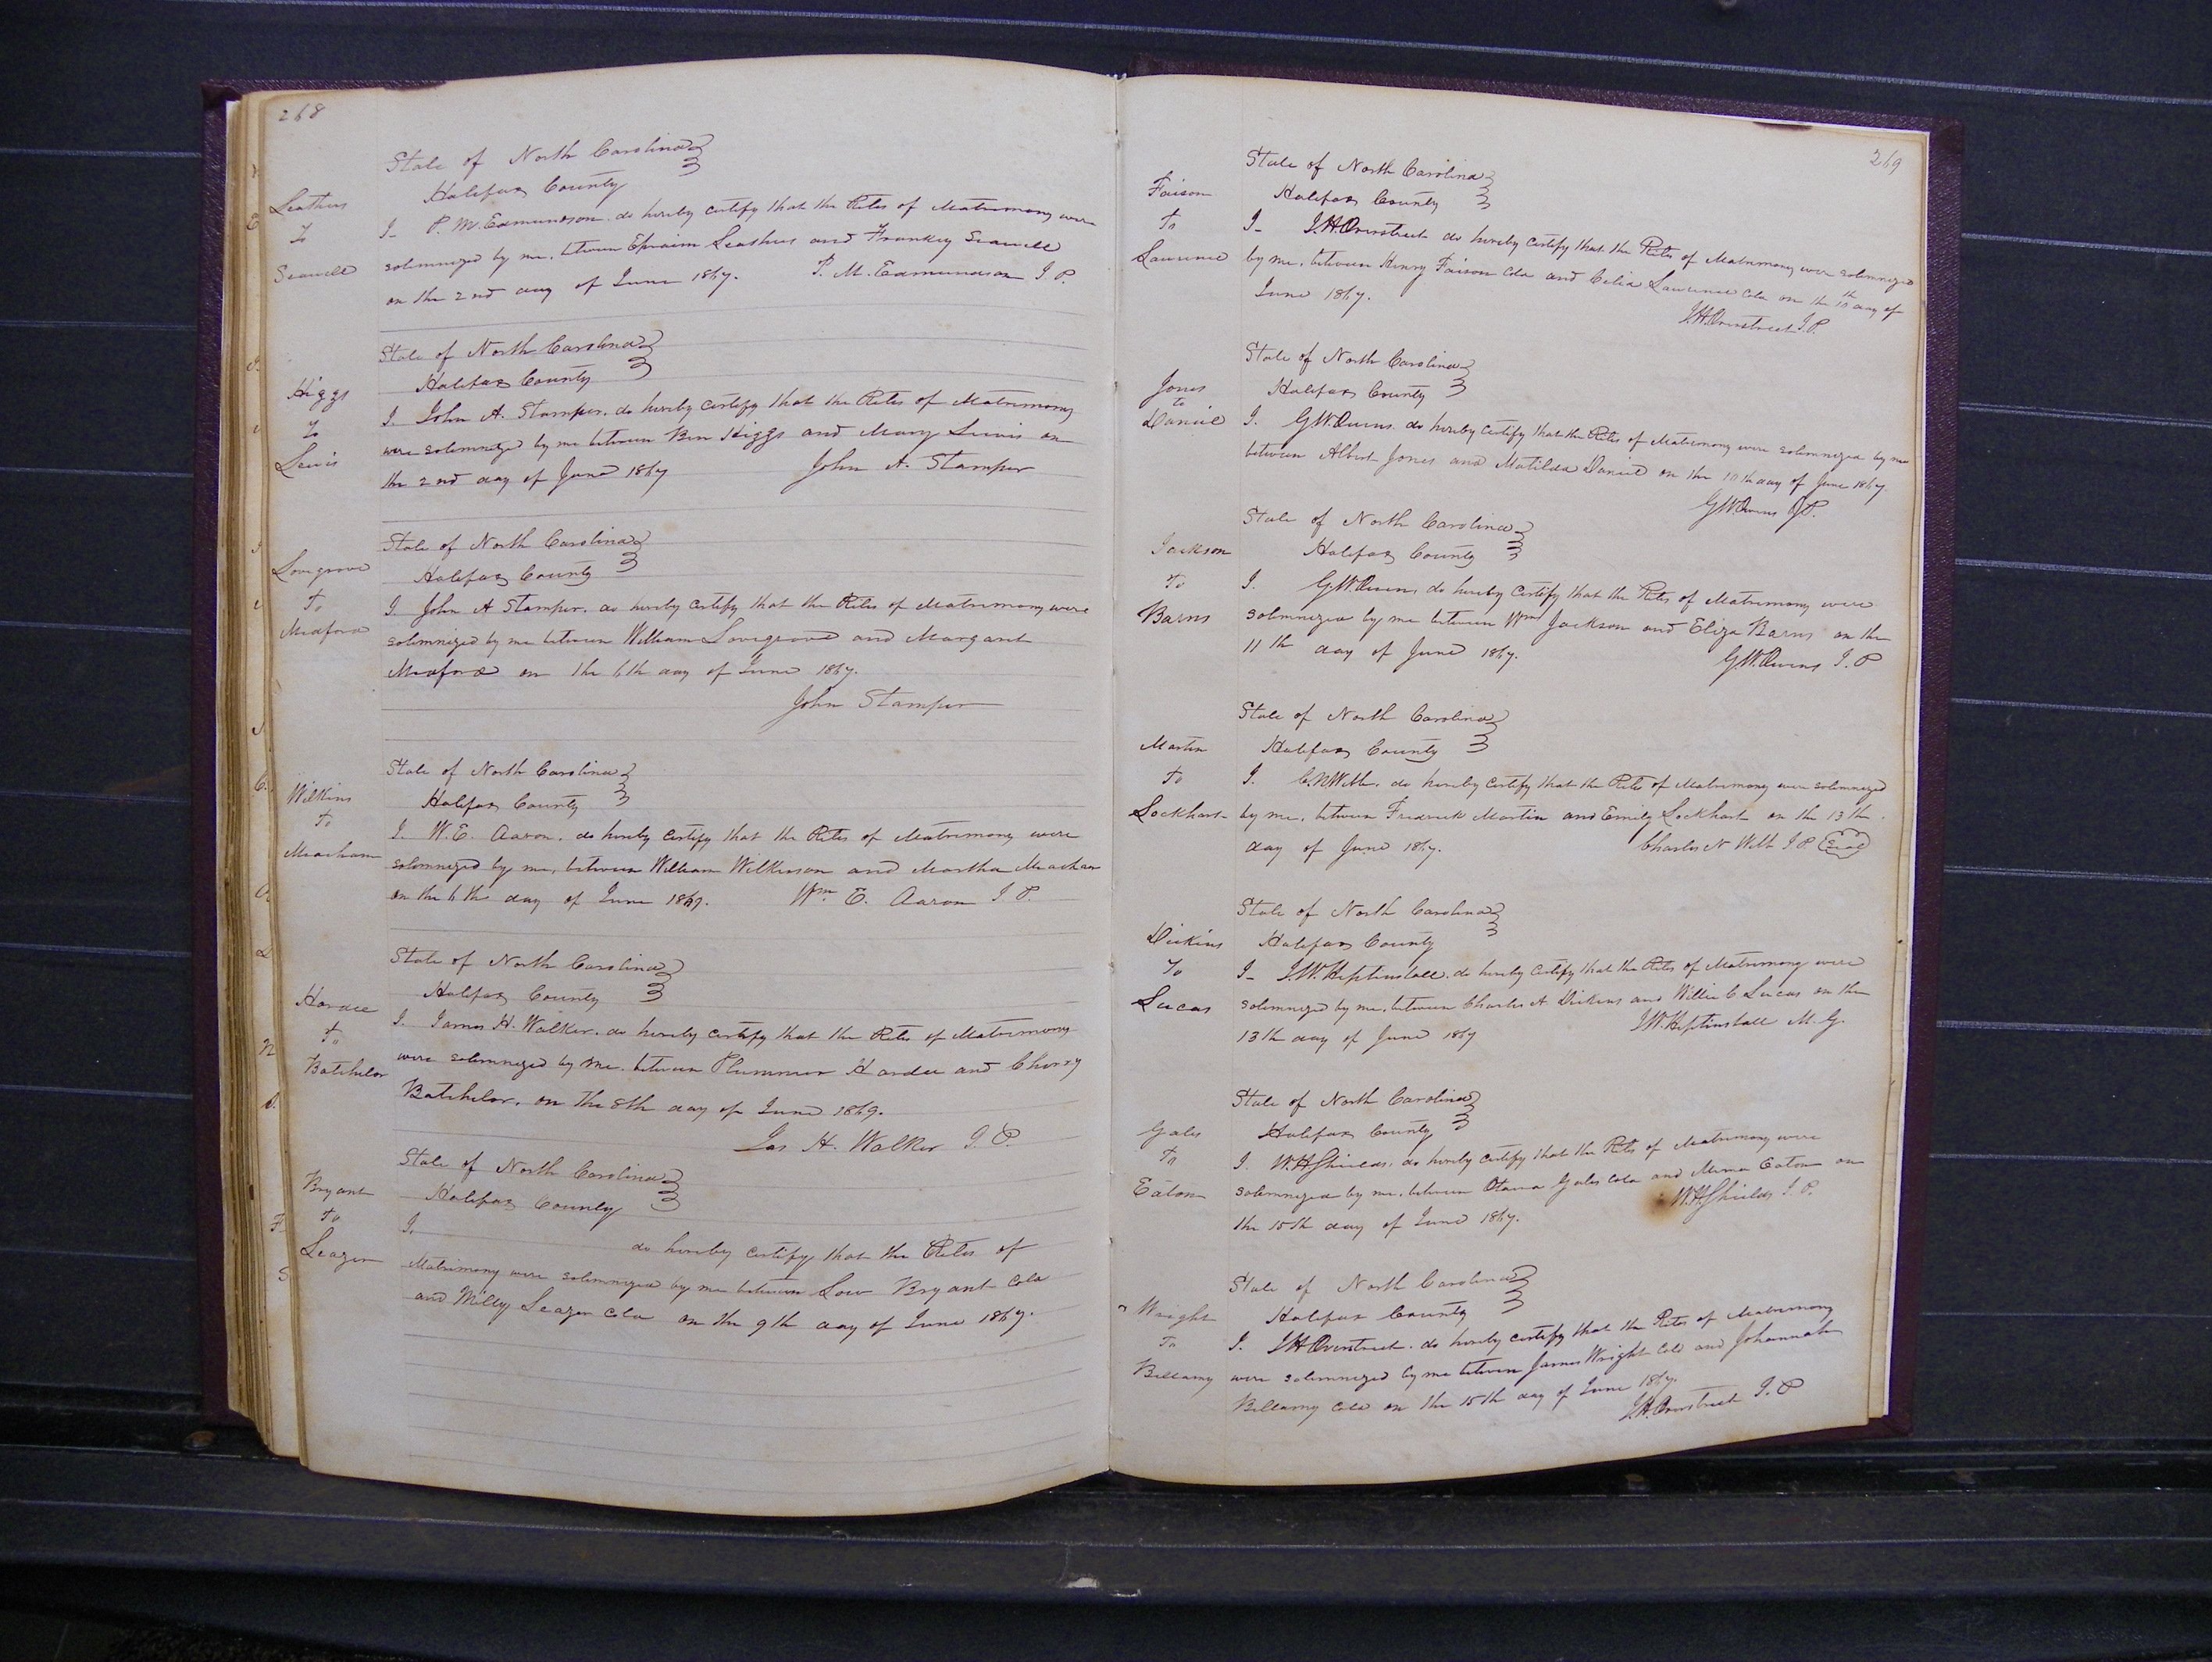 268
State of North Carolina
Halifax County
Leathers
To
Seawell
I P. M. Edmundson do hereby certify that the Rites of Matrimony were
solemnized by me, between Ephraim Leathers and Frankey Seawell
on the 2nd day of June 1867. P. M. Edmundson J. P.
State of North Carolina
Halifax County
Higgs
To
Lewis
I. John A. Stamper. do hereby certify that the Rites of Matrimony
were solemnized by me between Ben Higgs and Mary Lewis on
the 2nd day of June 1867 John A. Stamper
State of North Carolina
Halifax County
Lovegrove
To
Medford
I John A Stamper. do hereby certify that the Rites of Matrimony were
solemnized by me between William Lovegrove and Margant
Medford on the 6th day of June 1867.
John Stamper
State of North Carolina
Halifax County
Wilkins
To
Meacham
I. W. E. Aaron. do hereby certify that the Rites of Matrimony were
solemnized by me, between William Wilkinson and Martha Meacham
on the 6th day of June 1867. Wm. E. Aaron J. P.
State of North Carolina
Halifax County
To
Batchelor
I. James H. Walker. do hereby certify that the Rites of Matrimony
were solemnized by me. between Plummer Hardee and Cherry
Batchelor. on the 8th day of June 1867.
Jas H. Walker J. P.
State of North Carolina
Halifax County
Bryant
To
Leazer
I. do hereby certify that the Rites of
Matrimony were solemnized by me between Low Bryant Cold
and Milly Leazer Cold on the 9th day of June 1867.
269
State of North Carolina
Halifax County
Faison
To
Lawrence
I J. H. Overstreet do hereby certify that the Rites of Matrimony were solemnized
by me, between Henry Faison Cold and Celia Lawrence Cold on the 10th day of
June 1867.
J. H. Overstreet J. P.
State of North Carolina
Halifax County
Jones
to
Daniel
I. G. W. Owens do hereby certify that the Rites of Matrimony were solemnized by me
between Albert Jones and Matilda Daniel on the 10th day of June 1867.
G. W. Owens J. P.
State of North Carolina
Halifax County
Jackson
To
Barns
I. G. W. Owens do hereby certify that the Rites of Matrimony were
solemnized by me between Wm Jackson and Eliza Barns on the
11th day of June 1867. G. W. Owens J. P
State of North Carolina
Halifax County
Martin
To
Lockhart
I. C. N. Webb. do hereby certify that the Rites of Matrimony were solemnized
by me, between Fredrick Martin and Emily Lockhart on the 13th
day of June 1867. Charles N Webb J P Seal
State of North Carolina
Halifax County
Dickins
To
Lucas
I J. W. Heptinstall do hereby certify that the Rites of Matrimony were
solemnized by me, between Charles A Dickens and Willie C Lucas on the
13th day of June 1867 J. W. Heptinstall M. G.
State of North Carolina
Halifax County
Gales
To
Eaton
I. W. H. Shields, do hereby certify that the Rites of Matrimony were
solemnized by me, between Gales Cold and Eaton on
the 15th day of June 1867. W. H. Shields J. P.
State of North Carolina
Halifax County
Wright
To
Bellamy
I. J. H. Overstreet. do hereby certify that the Rites of Matrimony
were solemnized by me between James Wright Cold and Johannah
Bellamy Cold on the 15th day of June 1867.
J. H. Overstreet J. P